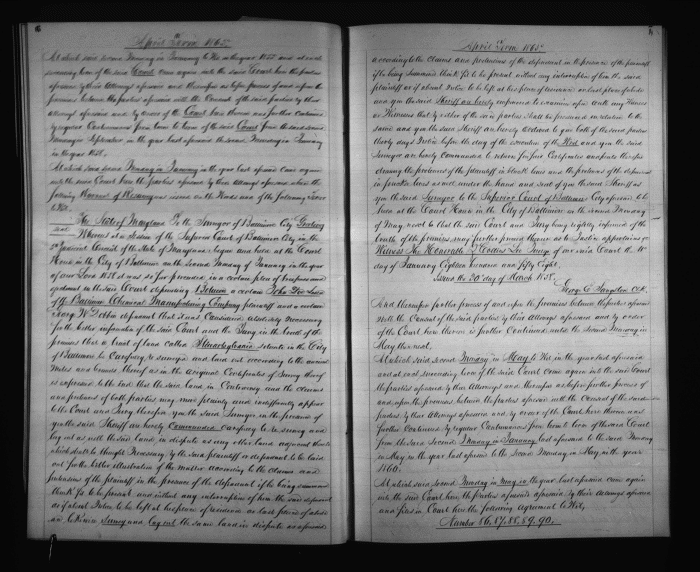 April Term 1865.
At which said second Monday in January to Wit in the year 1858 and at each
succeeding term of the said Court came again into the said Court here the parties
aforesaid by their Attorneys aforesaid and thereupon as before process of and upon the
premises between the parties aforesaid with the Consent of the said parties by their
Attorneys aforesaid and by order of the Court here thereon was further continued
by regular Continuances from term to term of the said Court from the said second
Monday in September in the year last aforesaid the second Monday in January
in the year 1858.
At which said second Monday in January in the year last aforesaid came again
into the said Court here the parties aforesaid by their Attorneys aforesaid when the
following Warrant of Resurvey was issued out
to Wit,
The State of Maryland To the Surveyor of Baltimore City Greeting
Whereas at a session of the Superior Court of Baltimore City in the
Judicial Circuit of the State of Maryland begun and held at the Court
House in the City of Baltimore on the second Monday of January in the year
of our Lord 1858 it was so far proceeded in a certain plea of trespass
ejectment in the said Court depending Between a certain John Doe Lessee
of the Baltimore Chemical Manufacturing Company plaintiff and a certain
Mary W Dobbin defendant that it was considered absolutely necessary
for the better information of the said Court and the Jury in the trial of the
premises that a tract of land called situate in the City
of Baltimore be carefully re surveyed and laid out according to the ancient
metes and bounds thereof as in the original Certificates of Survey thereof
is expressed to the end that the said land in Controversy and the claims
and pretensions of both parties may more plainly and indifferently appear
to the Court and Jury therefore you the said Surveyor in the presence of
you the said Sheriff are hereby Commanded carefully to re survey and
lay out as well the said land in dispute as any other land adjacent thereto
which shall be thought necessary by the said plaintiff or defendant to be laid
out for the better illustration of the matter according to the claims and
pretensions of the plaintiff in the presence of the defendant if he being summoned
think fit to be present and without any interruption of him the said defendant
as if absent Notice to be left at his place of residence or last place of abode
and likewise Survey and lay out the same land in dispute as aforesaid
April Term 1865.
according to the claims and pretensions of the defendant in the presence of the plaintiff
if he being summoned think fit to be present without any interruption of him the said
plaintiff as if absent Notice to be left at his place of residence or last place of abode
and you the said Sheriff are hereby empowered to examine upon Oath any Witness
or Witnesses that by either of the said parties shall be produced in relation to the
same and you the said Sheriff are hereby ordered to give both of the said parties
twenty days Notice before the day of the execution of this Writ and you the said
Surveyor are hereby commanded to return fair Certificates and plats thereof
clearing the pretensions of the plaintiff in black lines and the pretensions of the defendant
in lines as well under the hand and seal of you the said Sheriff as
you the said Surveyor to the Superior Court of Baltimore City aforesaid to be
held at the Court House in the City of Baltimore on the second Monday
of May next so that the said Court and Jury being rightly informed of the
truth of the premises may further proceed therein as to Justice appertains
Witness The Honorable Z Collins Lee Judge of our said Court the 11th
day of January Eighteen hundred and fifty Eight.
Issued the 20th day of March 1858.
George E Sangston Clk.
And thereupon further process of and upon the premises between the parties aforesaid
with the Consent of the said parties by their Attorneys aforesaid and by order
of the Court here thereon is further Continued until the second Monday in
May then next.
At which said second Monday in May to Wit in the year last aforesaid
and at each succeeding term of the said Court came again into the said Court
the parties aforesaid by their Attorneys and thereupon as before further process of
and upon the premises between the parties aforesaid with the Consent of the said
parties by their Attorneys aforesaid and by order of the Court here thereon was
further Continued by regular Continuances from term to term of the said Court
from the said second Monday in January last aforesaid to the said Monday
in May in the year last aforesaid to the second Monday in May in the year
1860.
At which said second Monday in May in the year last aforesaid came again
into the said Court here the parties aforesaid by their Attorneys aforesaid
and files in Court here the following Agreement to Wit,
Number 86, 87, 88, 89, 90.